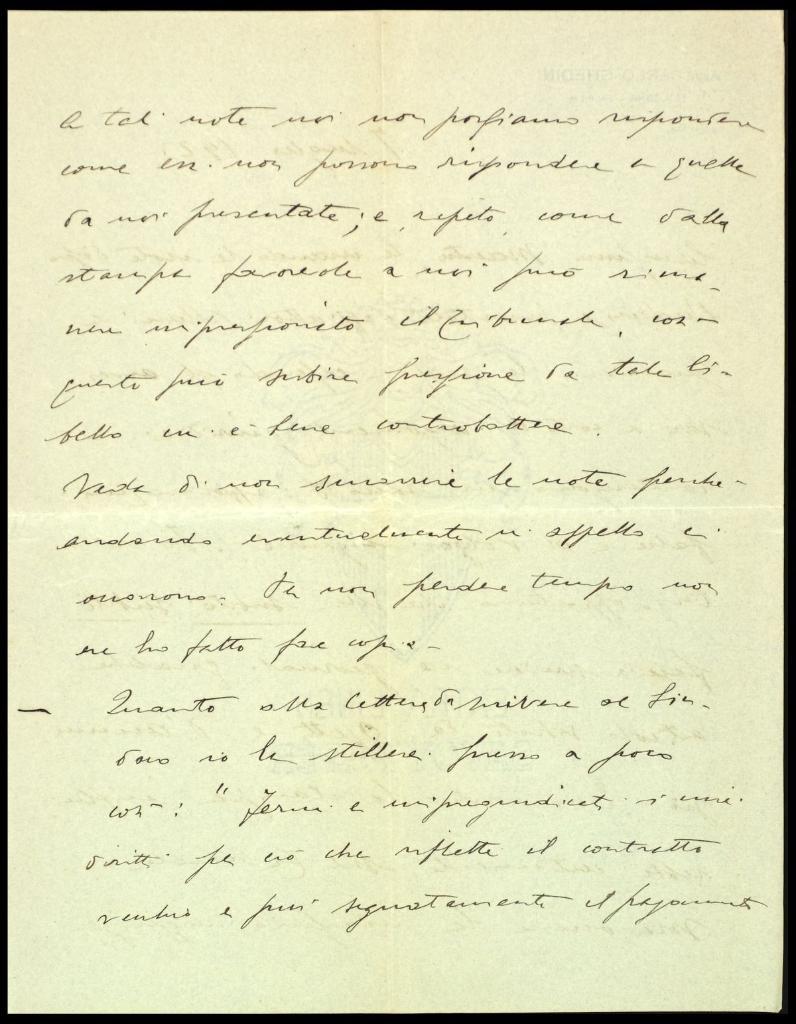 A tali note noi non possiamo rispondere
come essi non possono rispondere a quelle
da noi presentate; e, ripeto, come dalla
stampa favorevole a noi può rima-
nere impressionato il Tribunale, così
questo può subire pressione da tale li-
bello cui è bene controbattere.
Veda di non smarrire le note perché
andando eventualmente in appello ci
occorrono. Per non perdere tempo non
ne ho fatto fare copia -
- Quanto alla lettera da scrivere al Sin-
daco io la stillerei presso a poco
così: " Fermi e impregiudicati i miei
diritti per ciò che riflette il contratto
vecchio e più segnatamente il pagamento